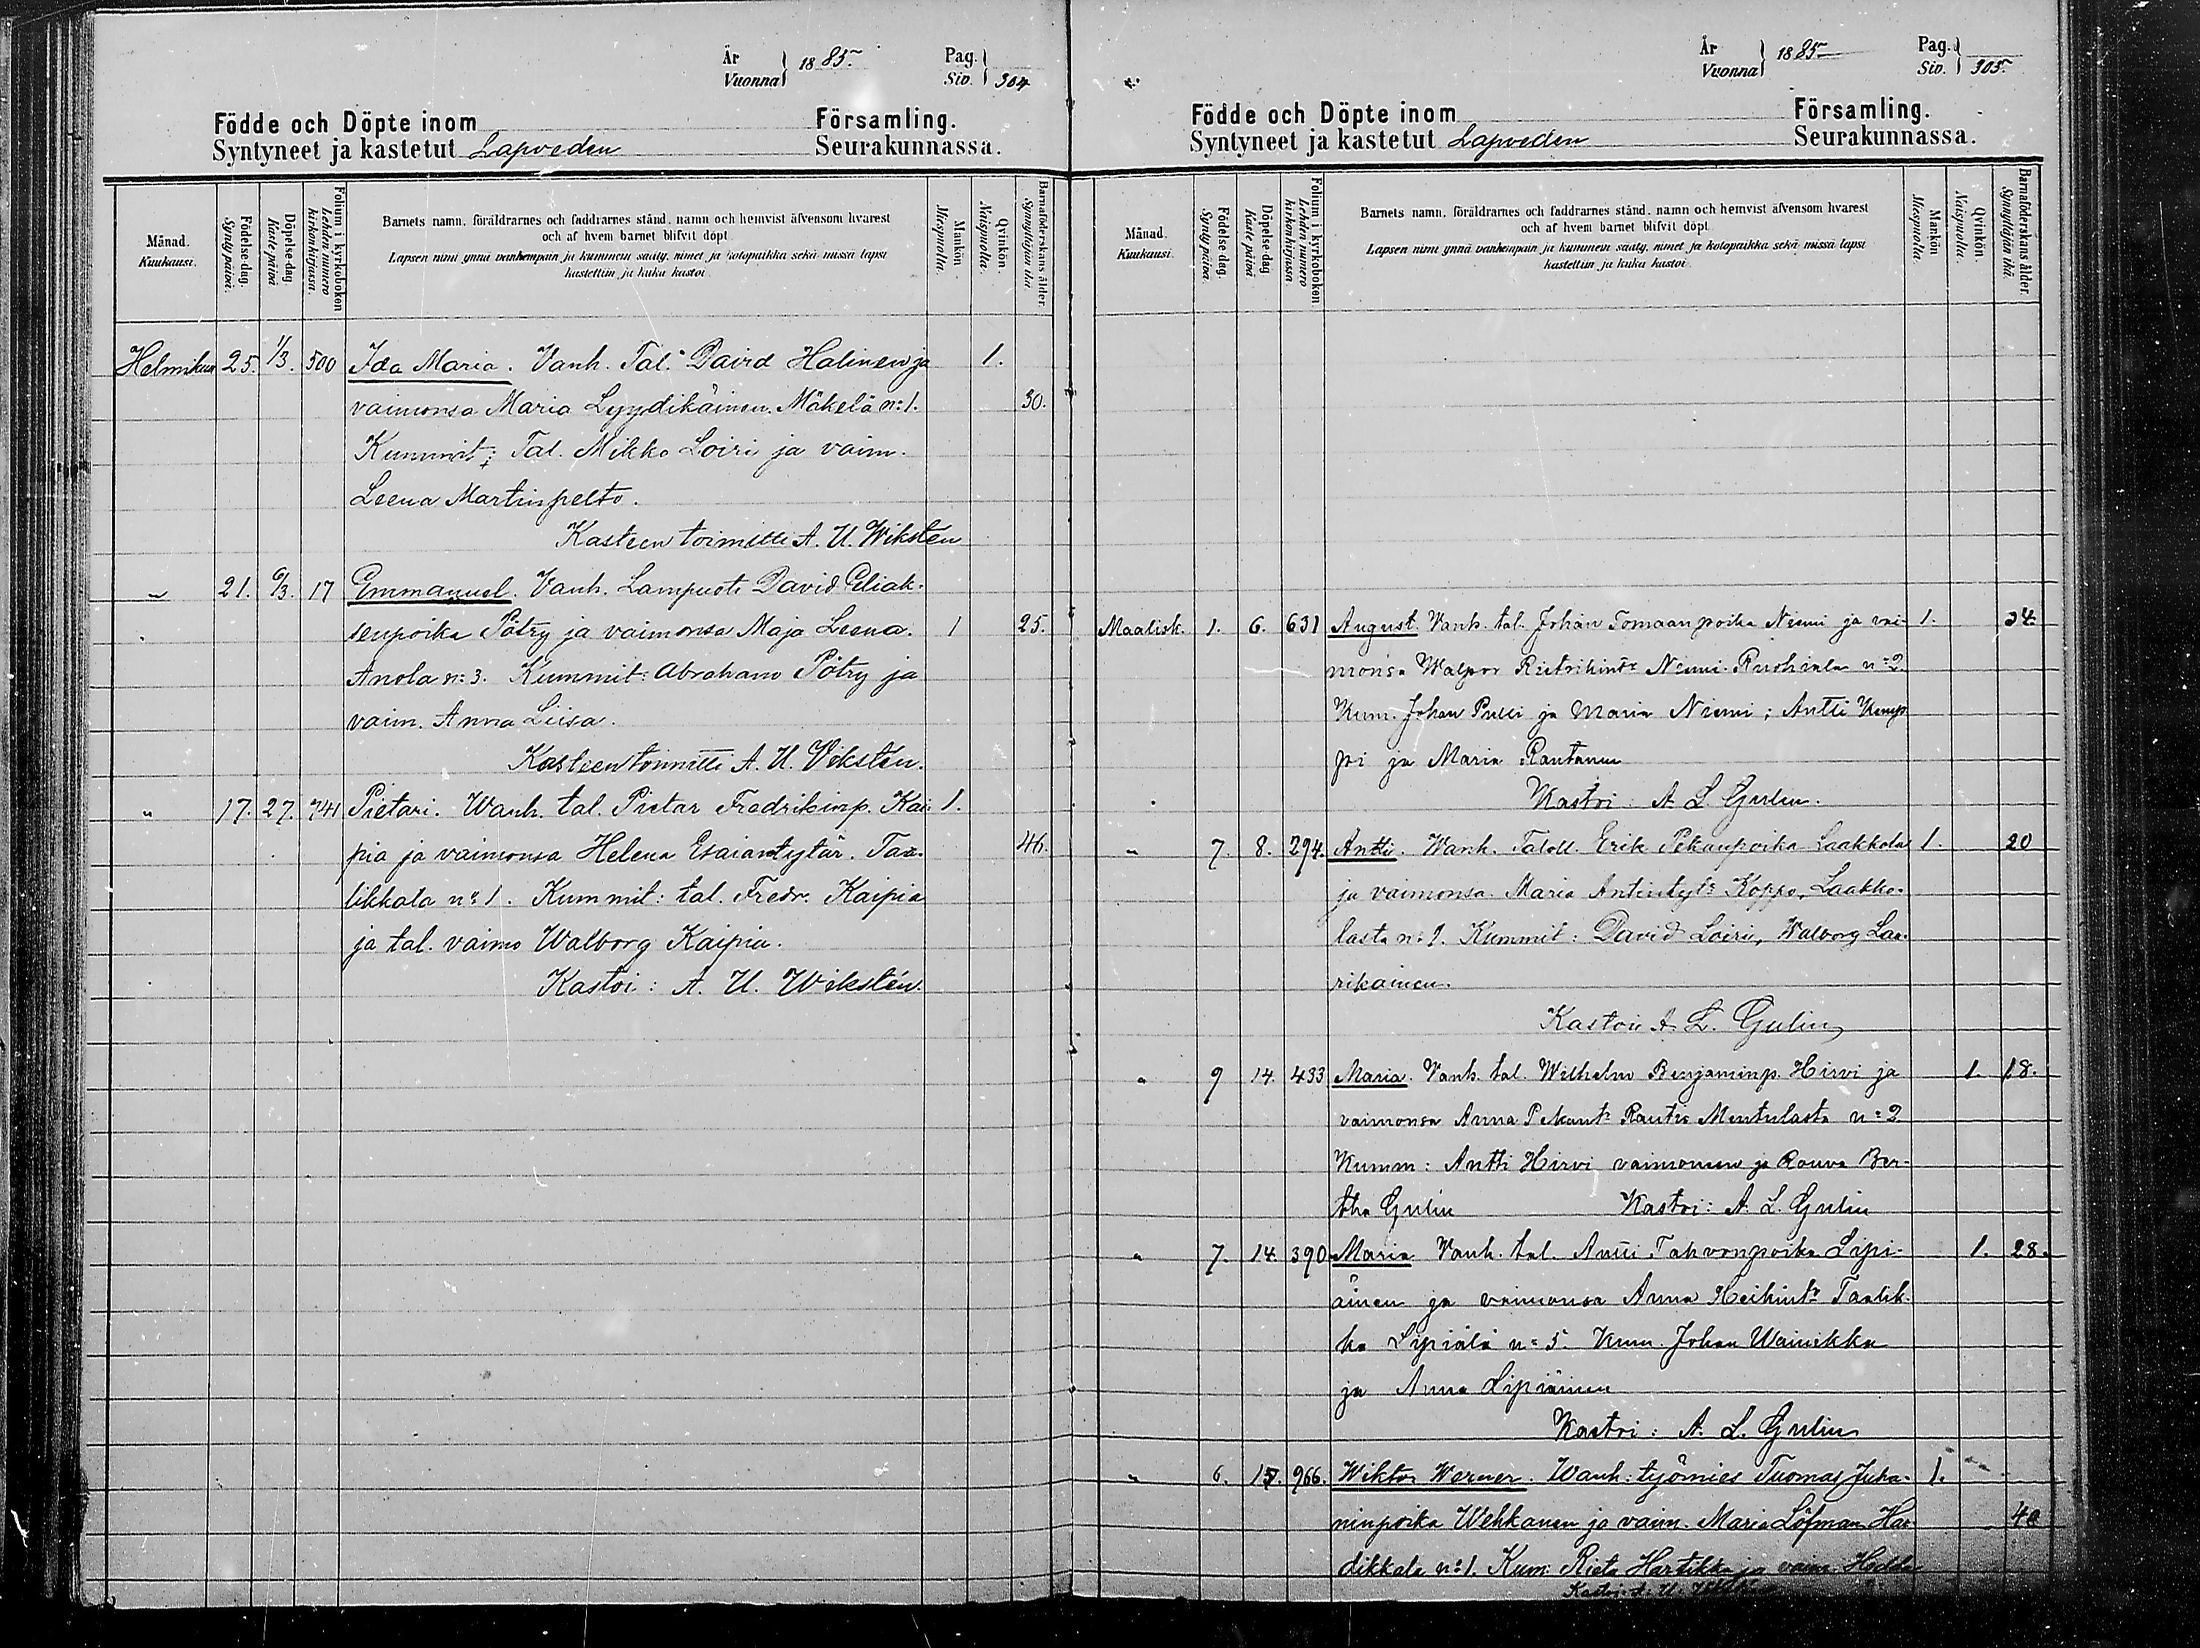 År
Vuonna 1885. Pag.
Siv. 304
Födde och Döpte inom Församling.
Syntyneet ja kastetut Lapveden Seurakunnassa.
Månad.
Kuukausi.
Födelse-dag.
Syntypäivä.
Döpelse-dag
Kastepäivä
Folium i kyrkoboken
Lehden numero kirkonkirjassa.
Barnets namn, föräldrarnes och faddrarnes stånd, namn och hemvist äfvensom hvarest
och af hvem barnet blifvit döpt
Lapsen nimi ynnä vanhempain ja kummein sääty, nimet ja kotopaikka sekä missä lapsi
kastettiin ja kuka kastoi
Mankön
Miespuolta.
Qvinkön.
Naispuolta.
Barnaföderskans ålder.
Synnyttäjän ikä
Helmikuu 25. 1/3. 500 Ida Maria. Vanh. Tal. David Halinen ja 1.
vaimonsa Maria Lyydikäinen. Mäkelä n:1. 30.
Kummit: Tal. Mikko Loiri ja vaim.
Leena Martinpelto.
Kasteen toimitti A. U. Wiksten
" 21. 6/3. 17 Emmanuel. Vanh. Lampuoti David Eliak-
senpoika Pötry ja vaimonsa Maja Leena. 1 25.
Anola n:3. Kummit: Abraham Pötry ja
vaim. Anna Liisa.
Kasteen toimitti A. U. Viksten.
" 17. 27. 741 Pietari. Wanh. tal. Pietar Fredrikinp. Kai- 1.
pia ja vaimonsa Helena Esaiantytär. Taa- 46.
likkala n:1. Kummit: tal. Fredr. Kaipia
ja tal. vaimo Walborg Kaipia.
Kastoi: A. U. Wikstén
År
Vuonna 1885 Pag.
Siv. 305.
Födde och Döpte inom Församling.
Syntyneet ja kastetut Lapveden Seurakunnassa.
Månad.
Kuukausi.
Födelse-dag.
Syntypäivä.
Döpelse-dag
Kastepäivä
Folium i kyrkoboken
Lehden numero kirkonkirjassa.
Barnets namn, föräldrarnes och faddrarnes stånd, namn och hemvist äfvensom hvarest
och af hvem barnet blifvit döpt
Lapsen nimi ynnä vanhempain ja kummein sääty, nimet ja kotopaikka sekä missä lapsi
kastettiin ja kuka kastoi.
Mankön
Miespuolta
Qvinkön.
Naispuolta.
Barnaföderskans ålder.
Synnyttäjän ikä.
Maalisk. 1. 6. 631 August. Vanh. tal. Johan Tomaanpoika Niemi ja vai- 1. 34.
monsa Walpor Niemi Ruohiala n:2
Kum. Johan Pulli ja Maria Niemi; Antti Kemp-
pi ja Maria Rantanen
Kastoi: A. L. Gulin.
" 7. 8. 294. Antti. Wanh. Taloll. Erik Pekanpoika Laakkola 1. 20
ja vaimonsa Maria Antintytr Koppo, Laakko-
lasta n:1. Kummit: David Loiri, Walborg Laa-
rikainen.
Kastoi A. L. Gulin
" 9 14. 433 Maria. Vanh. tal. Wilhelm Benjaminp. Hirvi ja 1. 18.
vaimonsa Anna Pekant. Rautio Mentulasta n:2
Kumm: Antti Hirvi vaimonsa ja Rouva Ber-
tha Gulin Kastoi: A. L. Gulin
" 7. 14. 390 Maria Vanh. tal. Antti Tahvonpoika Lipi- 1. 28.
äinen ja vaimonsa Anna Heikint. Taalik-
ka Lipiälä n:5. Kum. Johan Wainikka
ja Anna Lipiäinen
Kastoi: A. L. Gulin
" 6. 15. 966. Wiktor Werner. Wanh: työmies Tuomas Juha- 1.
ninpoika Wehkanen ja vaim. Maria Löfman Har- 40
dikkala n:1. Kum: Rieta Hartikka ja vaim.
Kastoi: A. U.